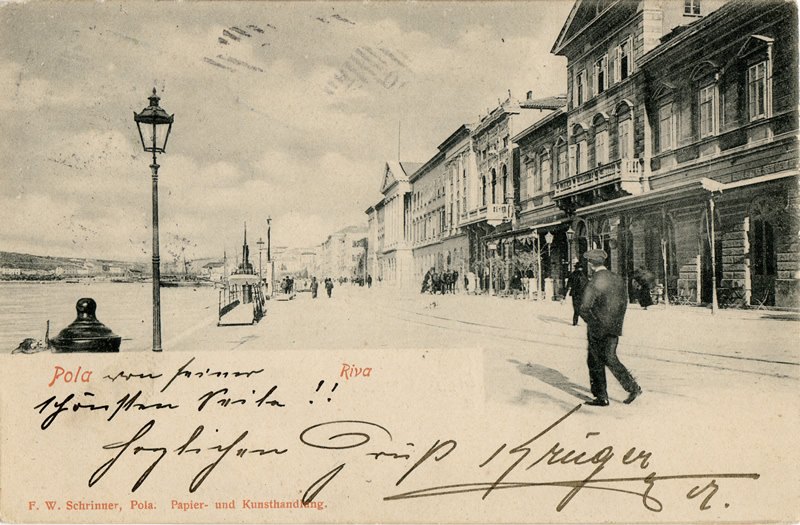 Pola von seiner Riva
schönsten Seite !!
Herzlichen Gruß Krüger
F. W. Schrinner, Pola. Papier- und Kunsthandlung.